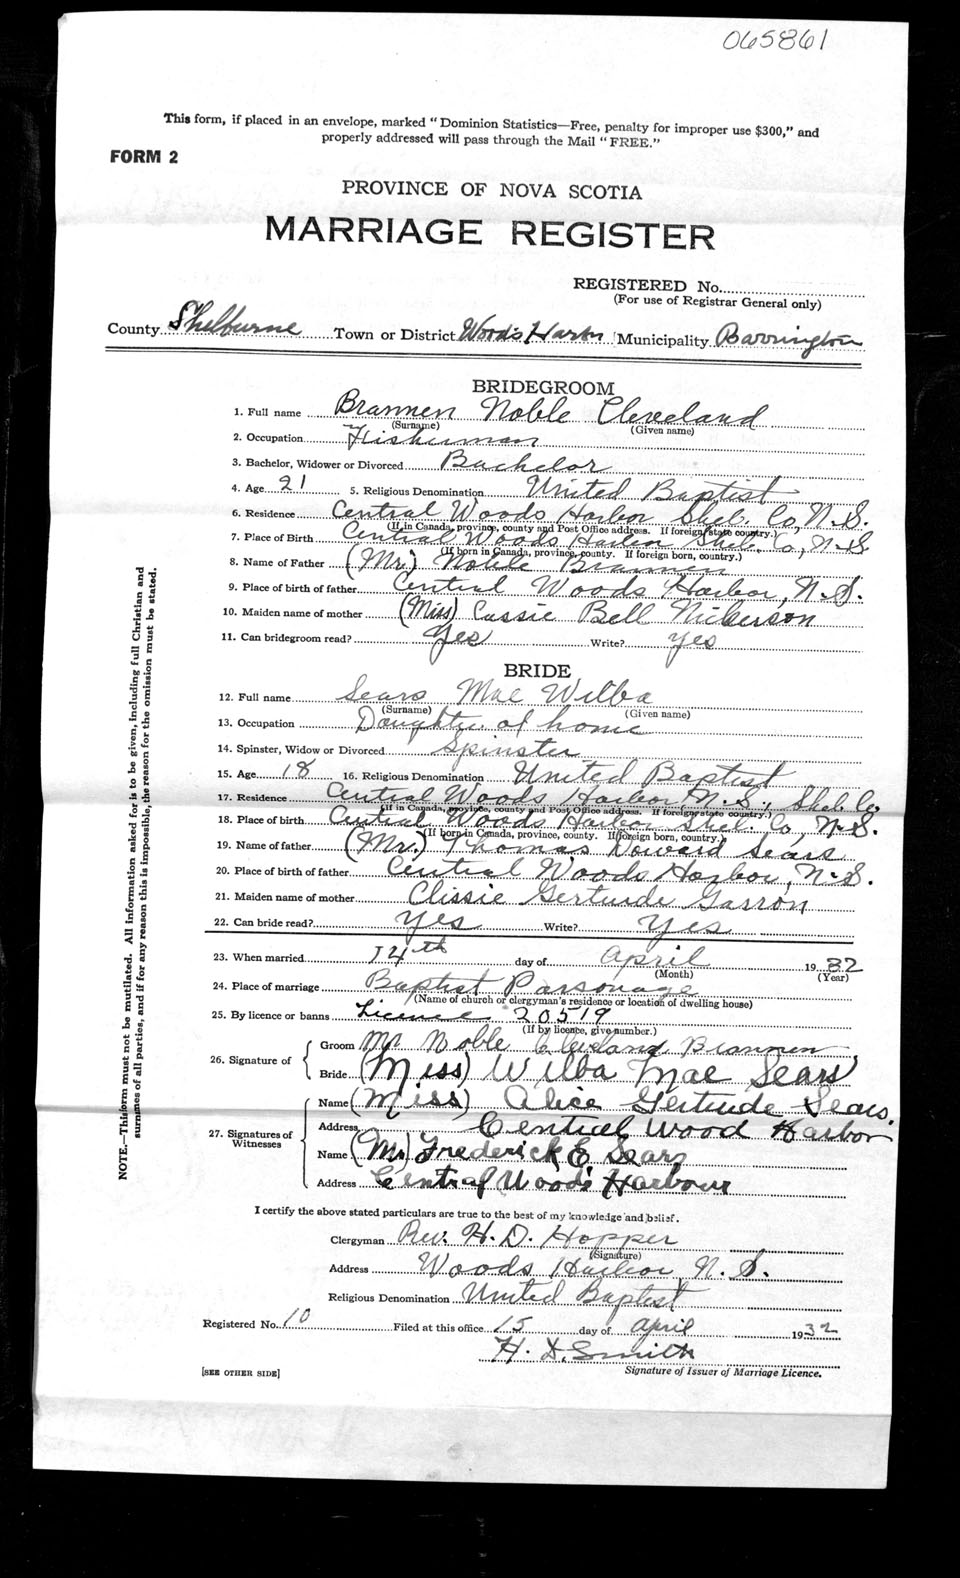 065861
This form, if placed in an envelope, marked "Dominion Statistics—Free, penalty for improper use $300," and
properly addressed will pass through the Mail "FREE."
FORM 2
PROVINCE OF NOVA SCOTIA
MARRIAGE REGISTER
REGISTERED No.
(For use of Registrar General only)
County Shelburne Town or District Woods Harbor Municipality Barrington
BRIDEGROOM
1. Full name Brannen Noble Cleveland
(Surname) (Given name)
2. Occupation Fisherman
3. Bachelor, Widower or Divorced Bachelor
4. Age 21 5. Religious Denomination United Baptist
6. Residence Central Woods Harbor Shel. Co, N.S.
(If in Canada, province, county and Post Office address. If foreign state country.)
7. Place of Birth Central Woods Harbor Shel. Co, N.S
(If born in Canada, province, county. If foreign born, country.)
8. Name of Father (Mr.) Noble Brannen
9. Place of birth of father Central Woods Harbor, N.S.
10. Maiden name of mother (Miss) Cassie Bell Nickerson
11. Can bridegroom read? Yes Write? yes
BRIDE
12. Full name Sears Mae Wilba
(Surname) (Given name)
13. Occupation Daughter of home
14. Spinster, Widow or Divorced Spinster
15. Age 18 16. Religious Denomination United Baptist
17. Residence Central Woods Harbor N.S., Shel. Co.
(If in Canada, province, county and Post Office address. If foreign state country.)
18. Place of birth Central Woods Harbor Shel. Co, N.S.
(If born in Canada, province, county. If foreign born, country.)
19. Name of father (Mr.) Thomas Howard Sears
20. Place of birth of father Central Woods Harbor, N.S.
21. Maiden name of mother Clissie Gertrude Garron
22. Can bride read? yes Write? Yes
23. When married 14th day of April 1932
(Month) (Year)
24. Place of marriage Baptist Parsonage
(Name of church or clergyman's residence or location of dwelling house)
25. By licence or banns Licence 20519
(If by licence, give number.)
26. Signature of
Groom Mr Noble Cleveland Brannen
Bride (Miss) Wilba Mae Sears
27. Signatures of Witnesses
Name (Miss) Alice Gertrude Sears.
Address Central Wood Harbor
Name (Mr) Frederick E. Sears
Address Central Woods Harbour
I certify the above stated particulars are true to the best of my knowledge and belief.
Clergyman Rev. H. D. Hopper
(Signature)
Address Woods Harbor, N.S.
Religious Denomination United Baptist
Registered No. 10 Filed at this office 15 day of April 1932
H. D. Smith
[SEE OTHER SIDE] Signature of Issuer of Marriage Licence.
NOTE.—This form must not be mutilated. All information asked for is to be given, including full Christian and
surnames of all parties, and if for any reason this is impossible, the reason for the omission must be stated.